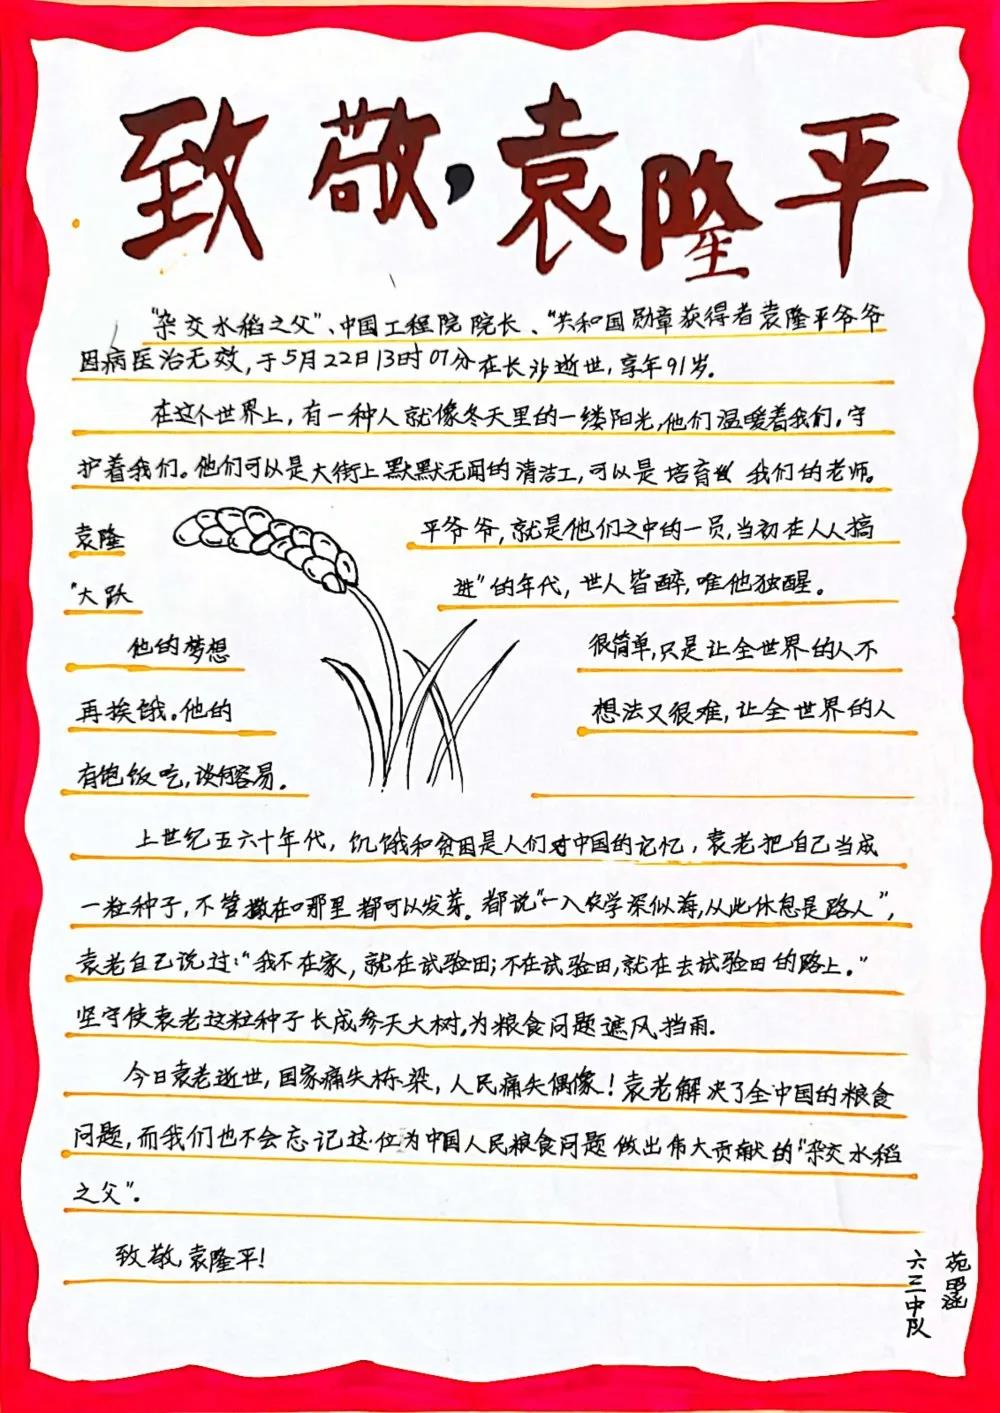 致敬,袁隆平
"杂交水稻之父"、中国工程院院长、"共和国勋章获得者袁隆平爷爷
因病医治无效,于5月22日13时07分在长沙逝世,享年91岁。
在这个世界上,有一种人就像冬天里的一缕阳光,他们温暖着我们,守
护着我们。他们可以是大街上默默无闻的清洁工,可以是培育 我们的老师。
袁隆平爷爷,就是他们之中的一员,当初在人人搞
"大跃进"的年代,世人皆醉,唯他独醒。
他的梦想很简单,只是让全世界的人不
再挨饿。他的想法又很难,让全世界的人
有饱饭吃,谈何容易。
上世纪五六十年代,饥饿和贫困是人们对中国的记忆,袁老把自己当成
一粒种子,不管撒在哪里都可以发芽。都说"一入农学深似海,从此休息是路人",
袁老自己说过:"我不在家,就在试验田;不在试验田,就在去试验田的路上。"
坚守使袁老这粒种子长成参天大树,为粮食问题遮风挡雨.
今日袁老逝世,国家痛失栋梁,人民痛失偶像!袁老解决了全中国的粮食
问题,而我们也不会忘记这位为中国人民粮食问题做出伟大贡献的"杂交水稻
之父"。
致敬,袁隆平!
六三中队
苑